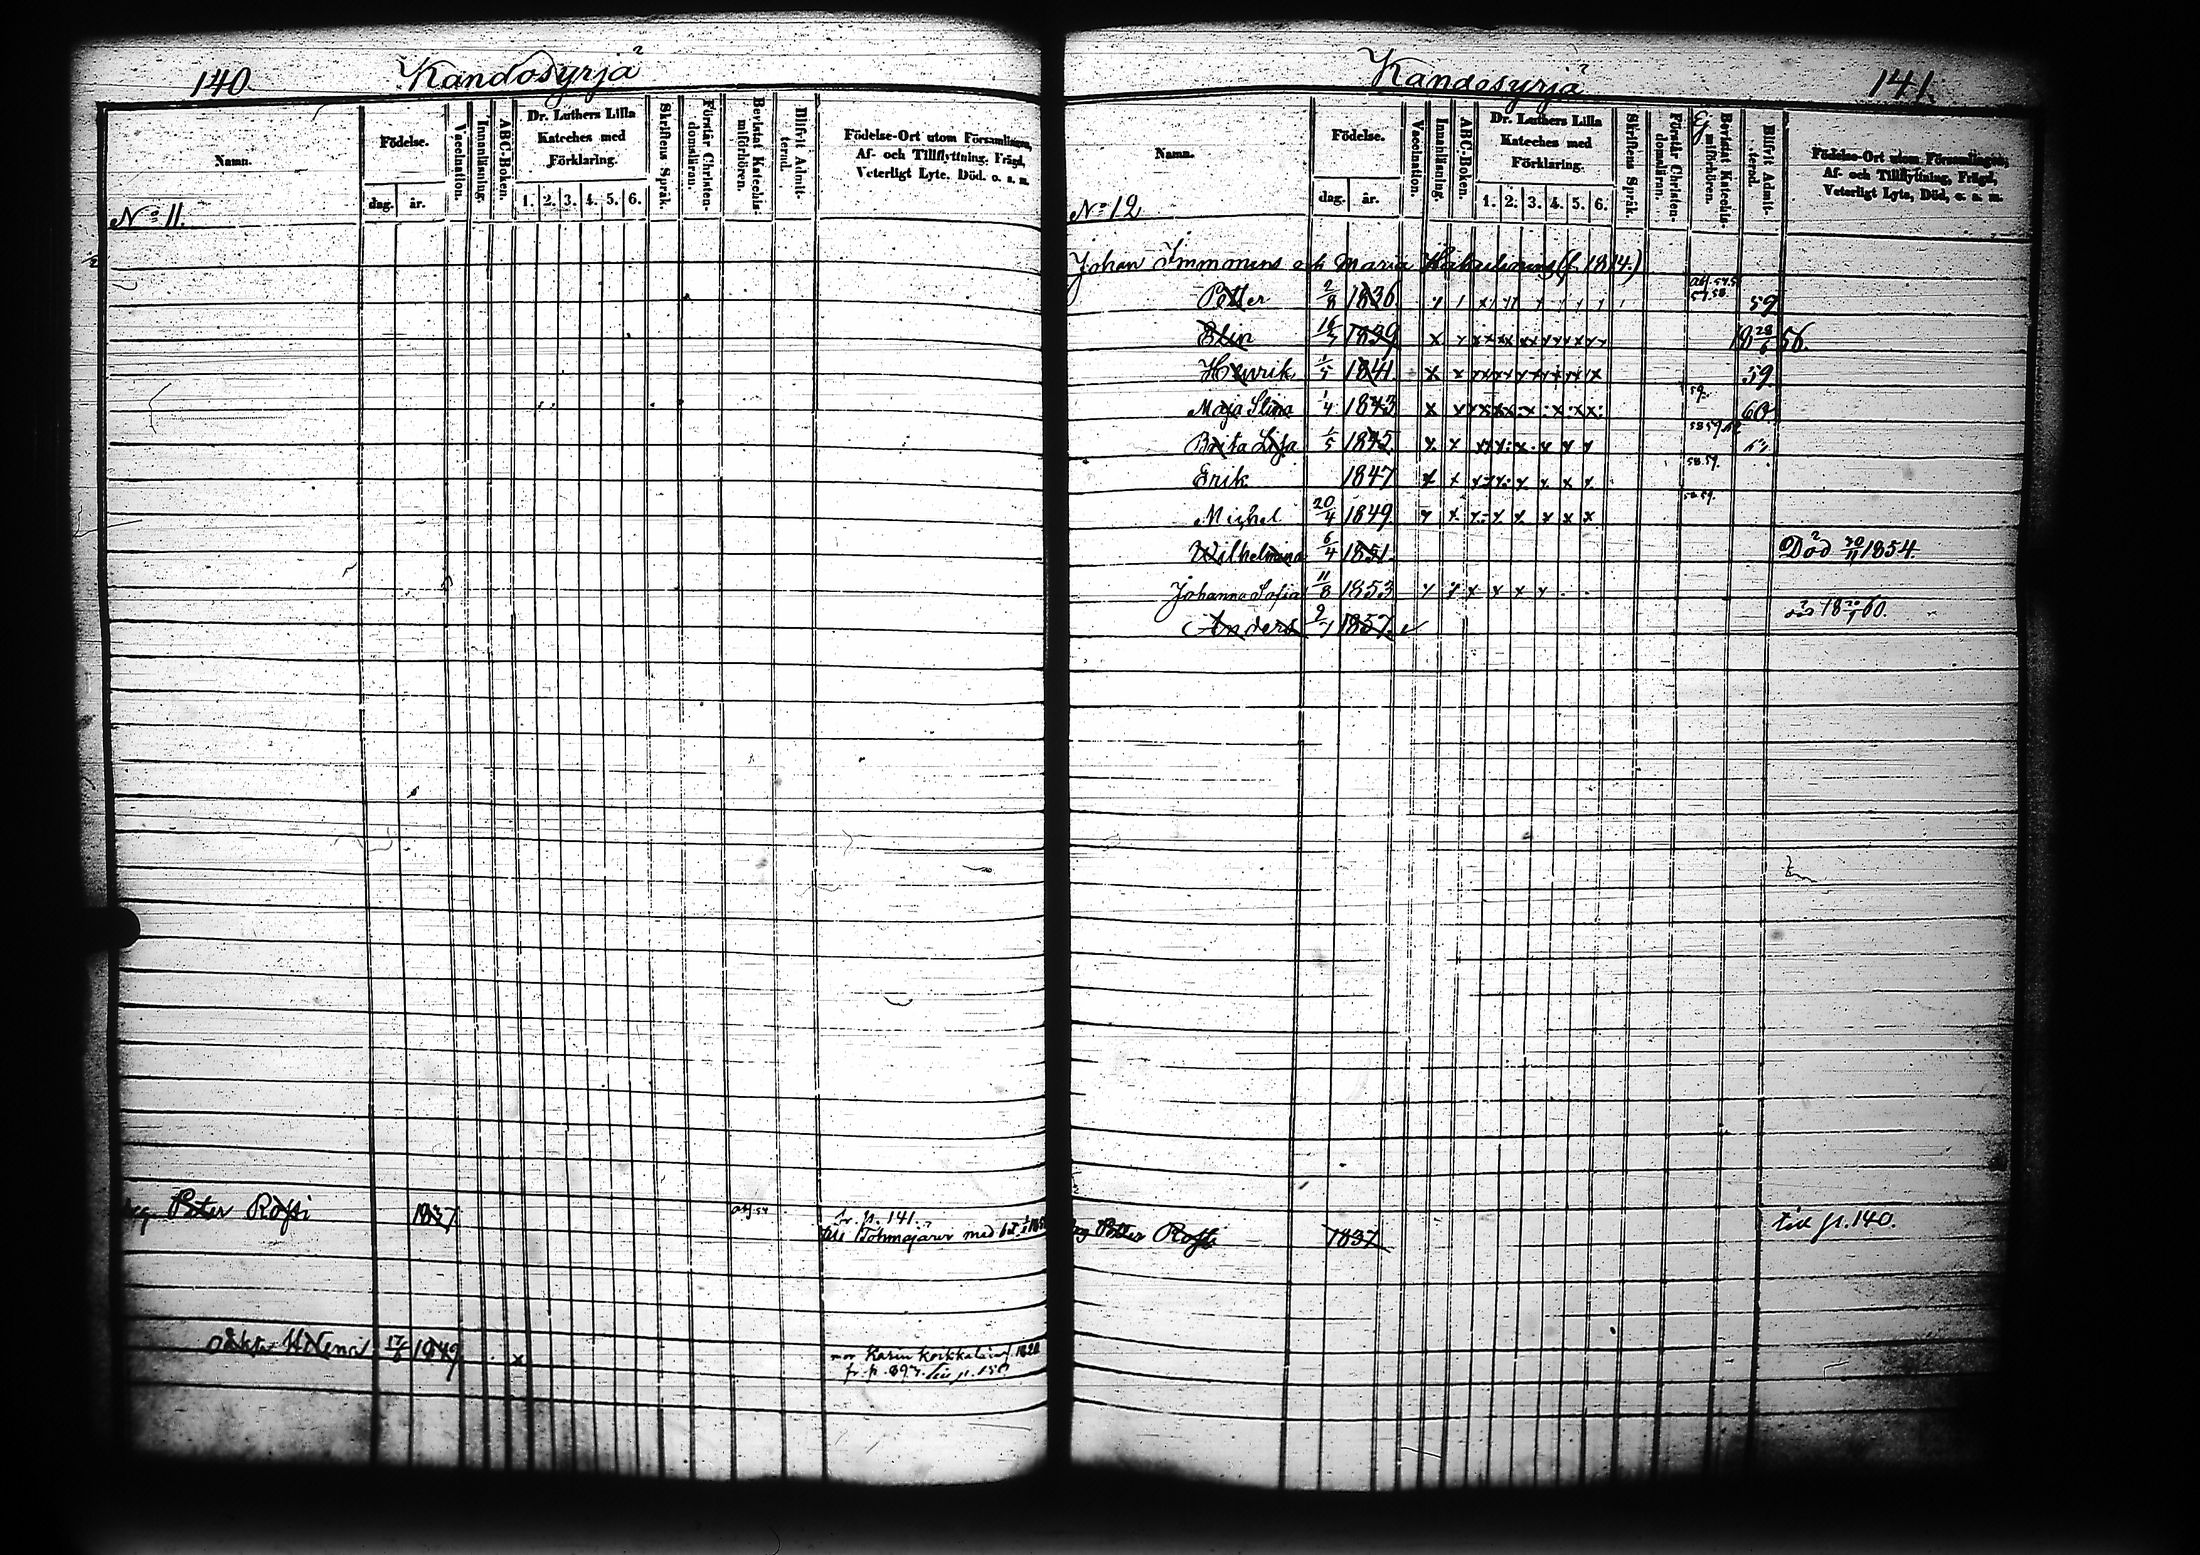 140
Kandosyrjä
Namn.
Födelse.
dag. år.
Vaccination.
Innanläsning.
ABC-Boken.
Dr. Luthers Lilla
Kateches med
Förklaring.
1. 2. 3. 4. 5. 6.
Skriftens Språk.
Förstår Christen-
domsläran.
Bevistat Katechis-
miförhören.
Blifvit Admit-
terad.
Födelse-Ort utom Församlingen,
Af- och Tillflyttning, Frägd,
Veterligt Lyte, Död, o. s. m.
No 11.
Peter Rossi 1837
fr. p. 141.
till Tohmajärvi med
Helena 1849
Karin
fr. p. till p. 150
Kandosyrjä
141.
Namn.
Födelse.
dag. år.
Vaccination.
Innanläsning.
ABC-Boken.
Dr. Luthers Lilla
Kateches med
Förklaring.
1. 2. 3. 4. 5. 6.
Skriftens Språk.
Förstår Christen-
domsläran.
Ej
Bevistat Katechis-
miförhören.
Blifvit Admit-
terad.
Födelse-Ort utom Församlingen,
Af- och Tillflyttning, Frägd,
Veterligt Lyte, Död, o. s. m.
No 12
Johan Immonens och Maria (f. 1814.)
Petter 2/8 1836 57.58. 59
Elin 1839 18 28/6 56.
Henrik 1/5 1841. 59
Maja Stina 1/4 1843 59. 60.
Brita Lisa 1/5 1845
Erik 1847 58.59.
Michel 20/4 1849. 58.59.
Wilhelmina 6/4 1851. Död 30/11 1854
Johanna Sofia 11/8 1853
Anders 1857.
Petter Rossi 1837 till p. 140.